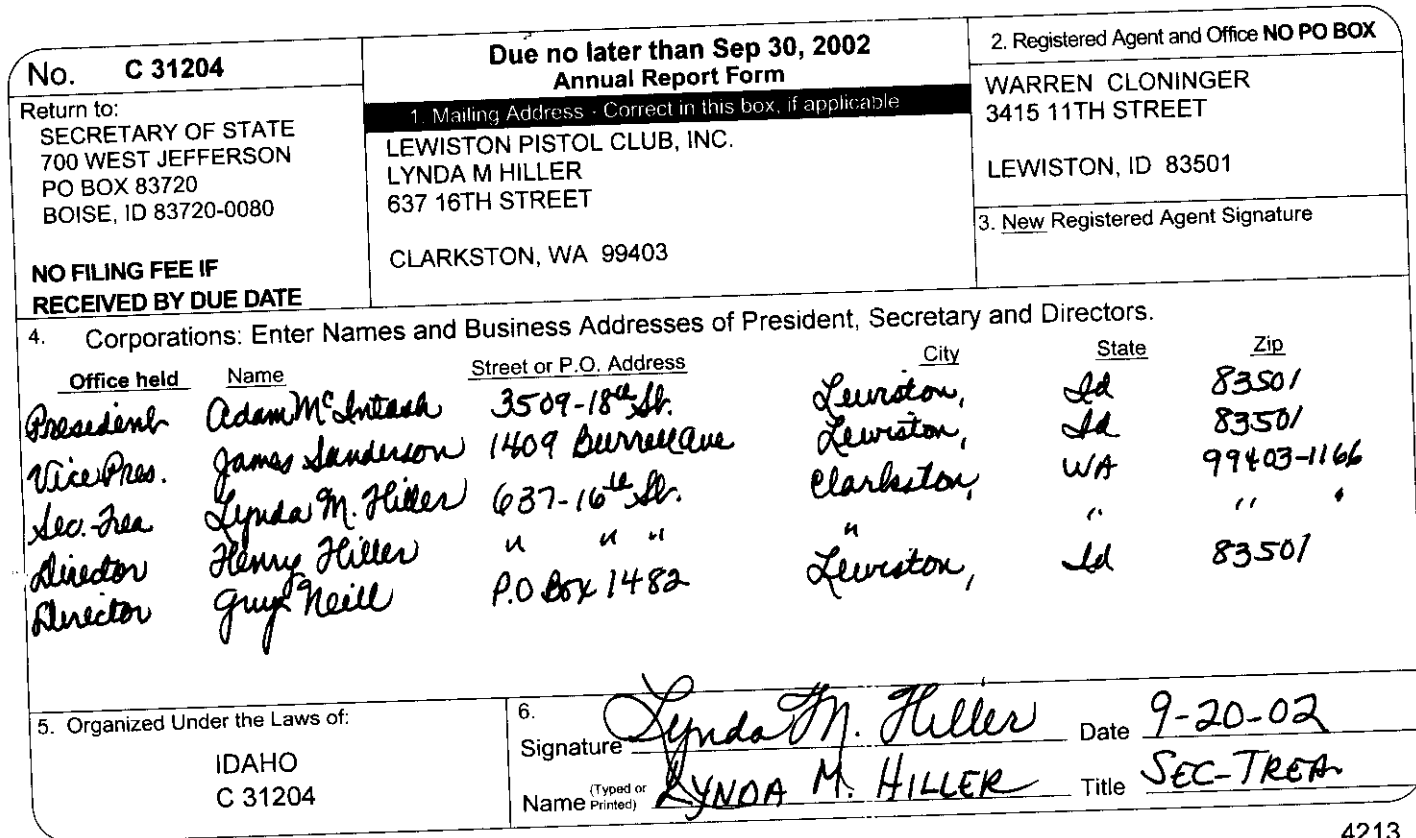 No. C 31204
Return to:
SECRETARY OF STATE
700 WEST JEFFERSON
PO BOX 83720
BOISE, ID 83720-0080
NO FILING FEE IF
RECEIVED BY DUE DATE
Due no later than Sep 30, 2002
Annual Report Form
1. Mailing Address - Correct in this box, if applicable
LEWISTON PISTOL CLUB, INC.
LYNDA M HILLER
637 16TH STREET
CLARKSTON, WA 99403
2. Registered Agent and Office NO PO BOX
WARREN CLONINGER
3415 11TH STREET
LEWISTON, ID 83501
3. New Registered Agent Signature
4. Corporations: Enter Names and Business Addresses of President, Secretary and Directors.
Office held Name Street or P.O. Address City State Zip
President Adam McIntash 3509-18th St. Lewiston, Id 83501
Vice Pres. James Sanderson 1409 Burrell Ave Lewiston, Id 83501
Sec.-Trea Lynda M. Hiller 637-16th St. Clarkston, WA 99403-1166
Director Henry Hiller " " " " " "
Director Guy Neill P.O Box 1482 Lewiston, Id 83501
5. Organized Under the Laws of:
IDAHO
C 31204
6.
Signature Lynda M. Hiller Date 9-20-02
Name (Typed or Printed) LYNDA M. HILLER Title SEC-TREA.
4213